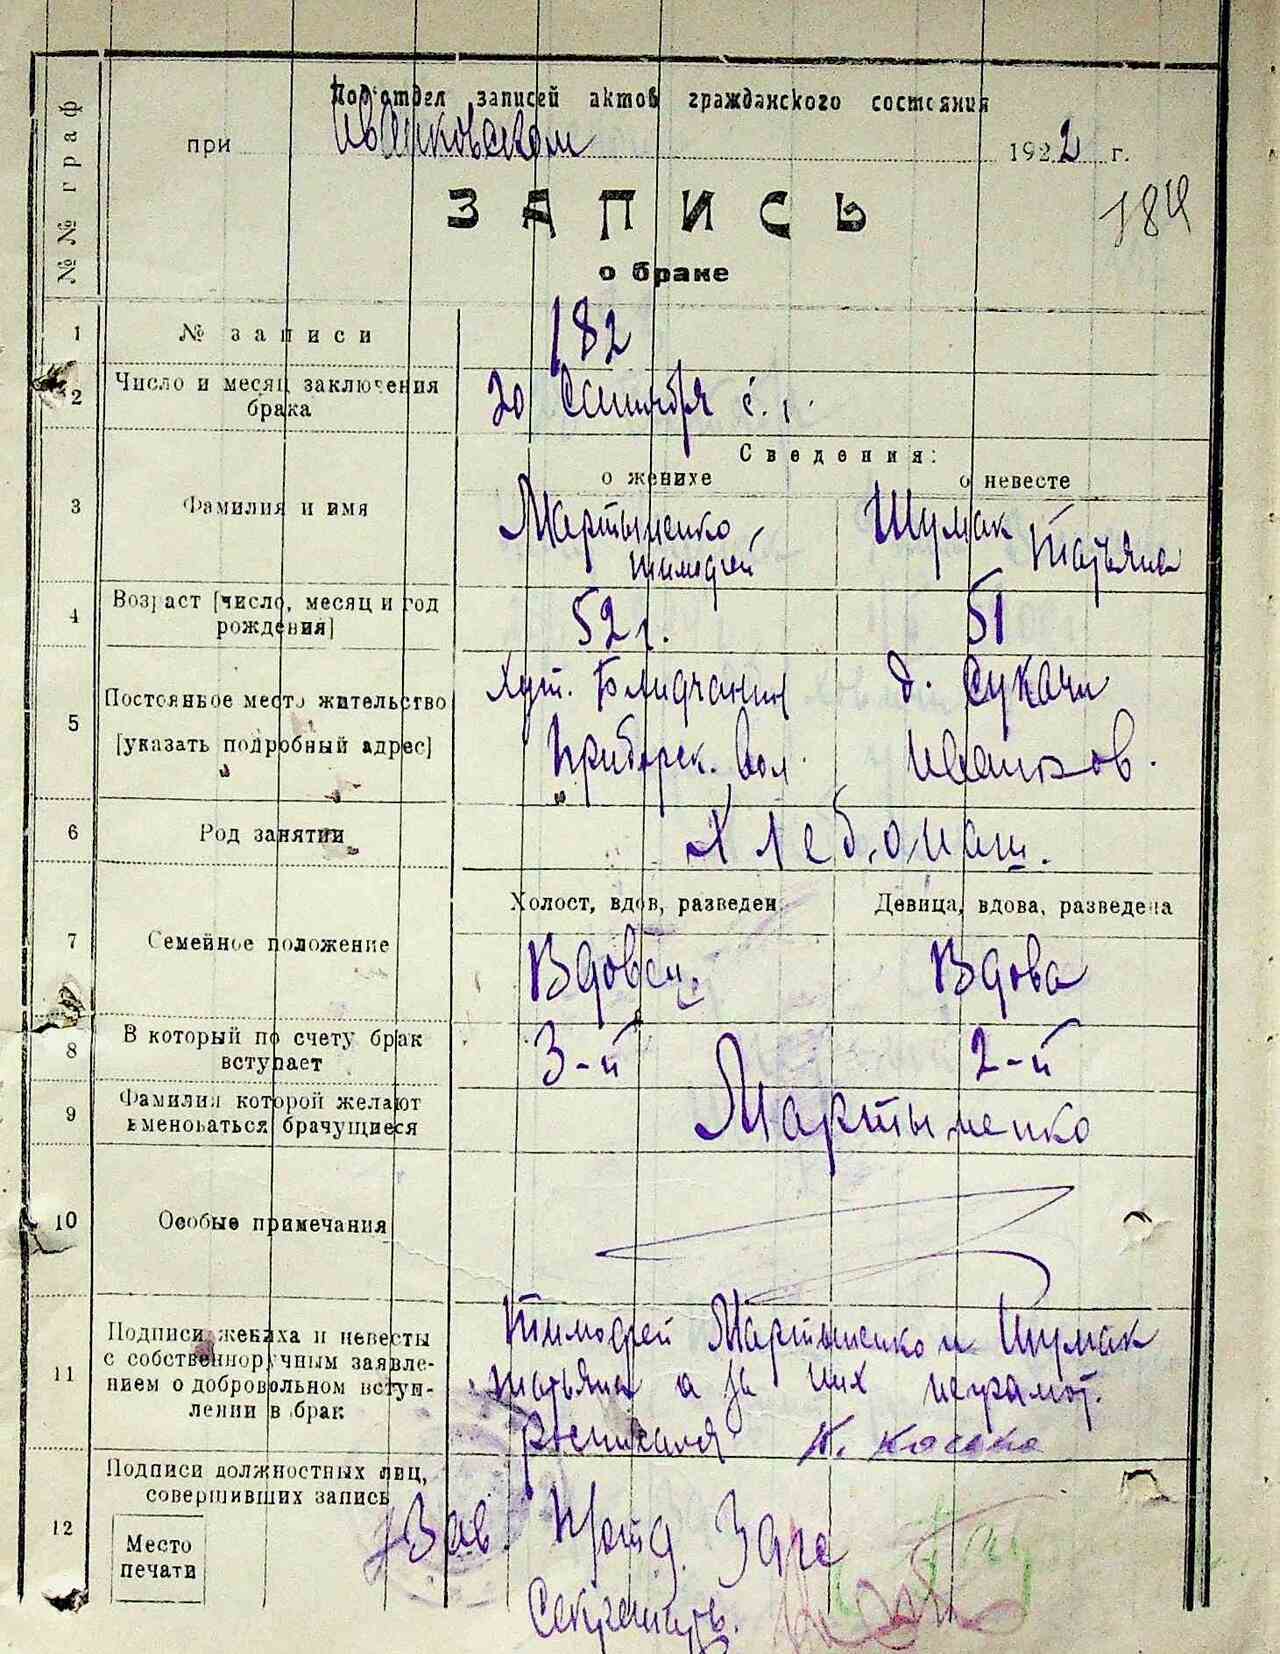 Подотдел записей актов гражданского состояния
при Иванковском 1922 г.
184
ЗАПИСЬ
о браке
№№ граф
1 № записи 182
2 Число и месяц заключения брака 20 Сентября с. г.
Сведения:
о женихе о невесте
3 Фамилия и имя Мартыненко Шумак
Тимофей Татьяна
4 Возраст [число, месяц и год рождения] 52 г. 51
5 Постоянное место жительство хут. д. Сукачи
[указать подробный адрес] Приборск. вол. Иванков.
6 Род занятии Хлебопаш.
Холост, вдов, разведен Девица, вдова, разведена
7 Семейное положение Вдовец. Вдова
8 В который по счету брак вступает 3-й 2-й
9 Фамилия которой желают именоваться брачущиеся Мартыненко
10 Особые примечания
11 Подписи жениха и невесты Тимофей Мартыненко и Шумак
с собственноручным заявле- Татьяна а за них неграмот.
нием о добровольном вступ- Росписался
лении в брак
12 Подписи должностных лиц,
совершивших запись
Зав. Загс
Место
печати
Секретарь.